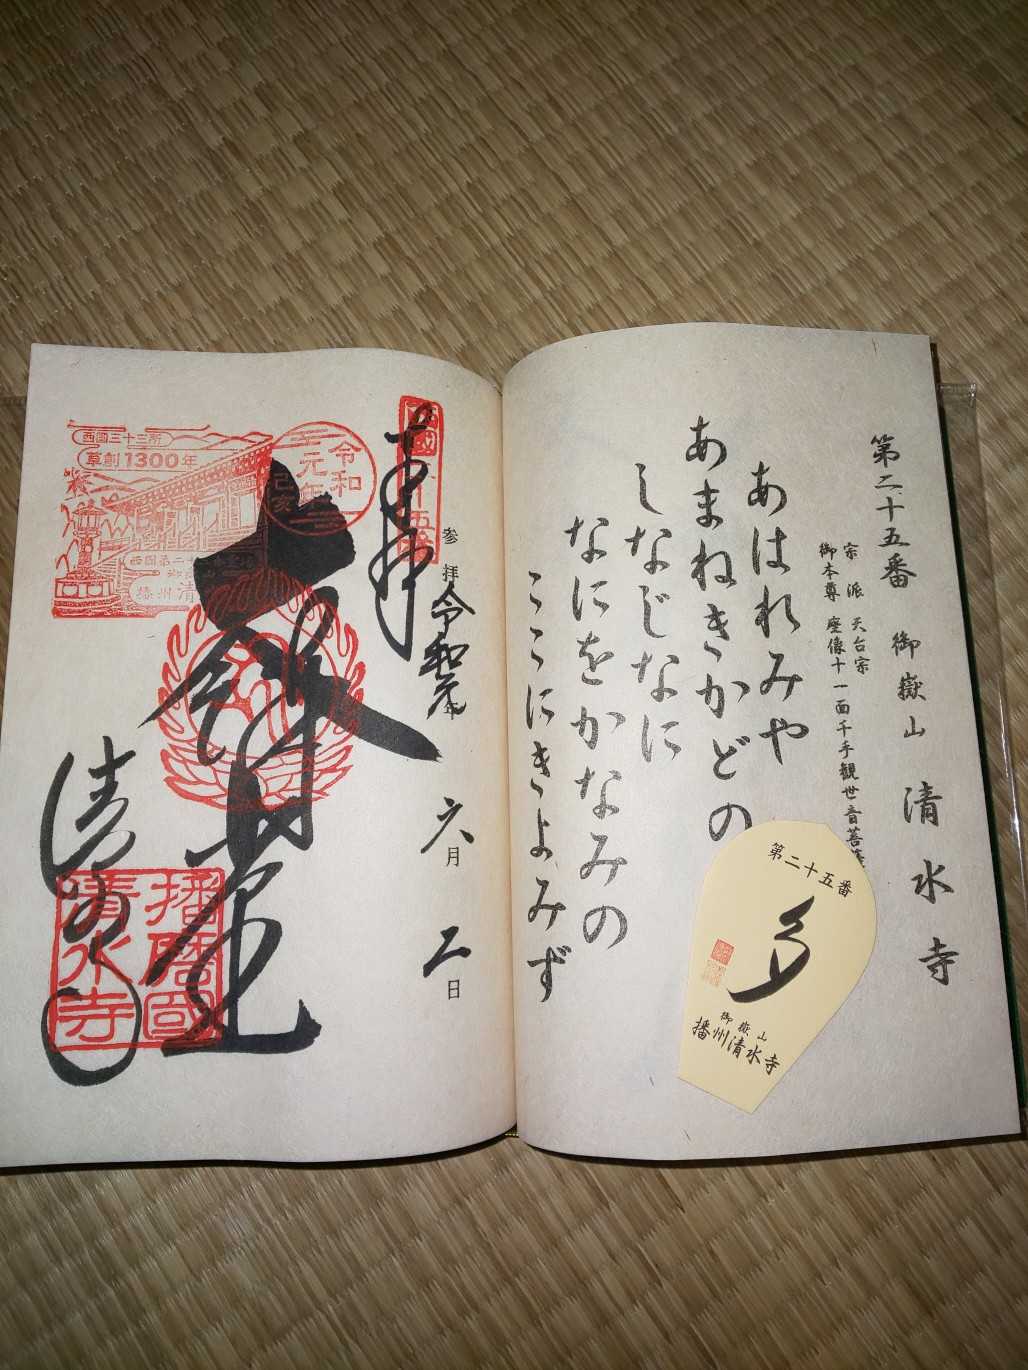 第二十五番 御嶽山 清水寺
宗派 天台宗
御本尊 座像十一面千手観世音菩薩
あはれみや
あまねきかどの
しなじなに
なにをかなみの
ここにきよみず
第二十五番
御嶽山
播州清水寺
奉拝
参拝 令和元年
六月 二日
大講堂
清水寺
西国三十三所
草創1300年
令和
元年
己亥
播磨國
清水寺